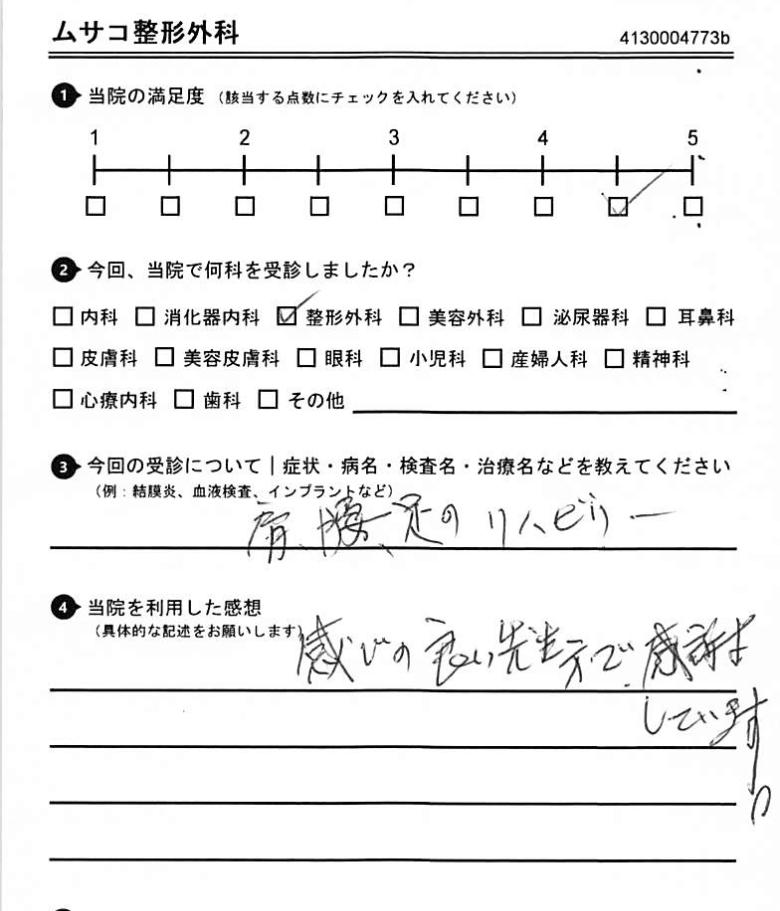 ムサコ整形外科 4130004773b
❶ 当院の満足度 (該当する点数にチェックを入れてください)
1 2 3 4 5
□ □ □ □ □ □ □ ☑ □
❷ 今回、当院で何科を受診しましたか?
□ 内科 □ 消化器内科 ☑ 整形外科 □ 美容外科 □ 泌尿器科 □ 耳鼻科
□ 皮膚科 □ 美容皮膚科 □ 眼科 □ 小児科 □ 産婦人科 □ 精神科
□ 心療内科 □ 歯科 □ その他
❸ 今回の受診について|症状・病名・検査名・治療名などを教えてください
(例:結膜炎、血液検査、インプラントなど)
肩、腰、足のリハビリー
❹ 当院を利用した感想
(具体的な記述をお願いします)
感じの良い先生方で、感謝を
しています。